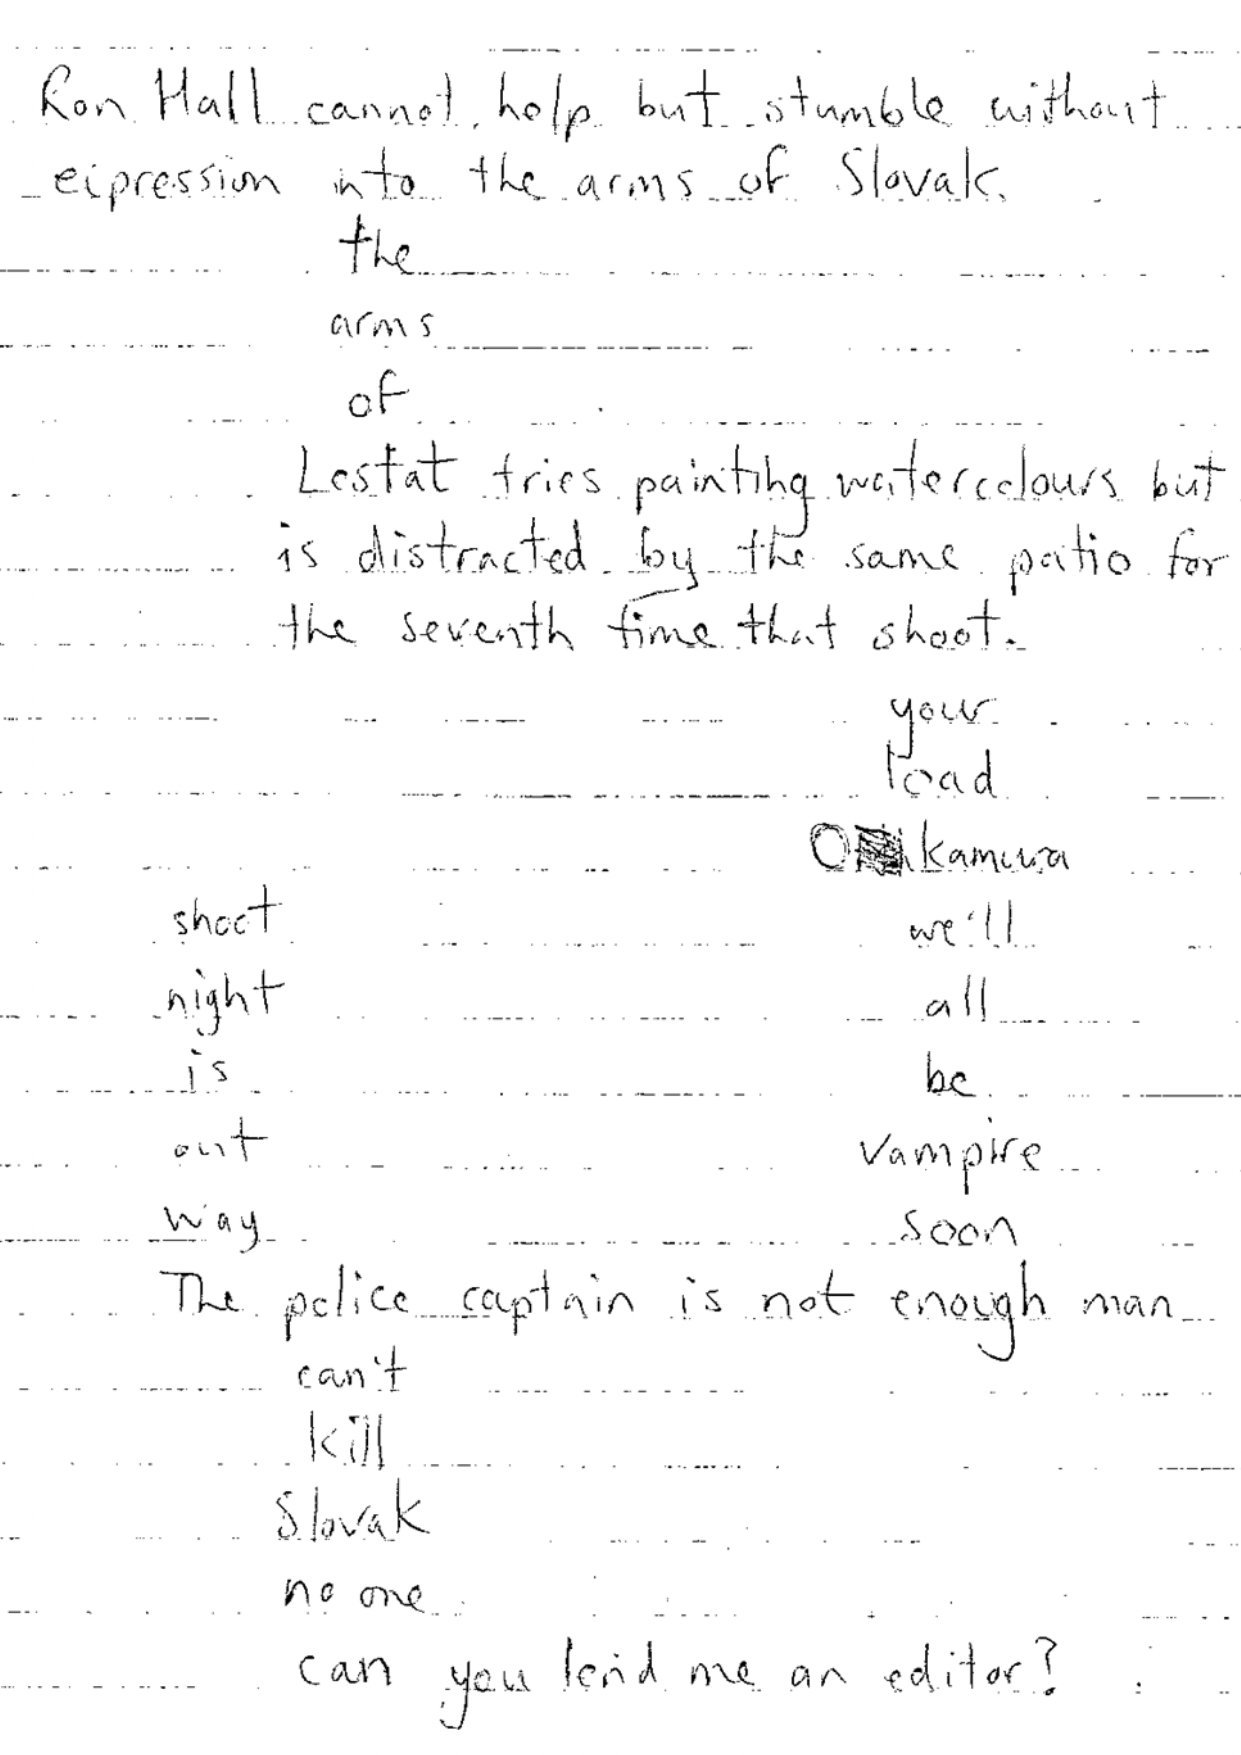 Ron Hall cannot help but stumble without
eipression into the arms of Slovak.
the
arms
of
Lestat tries painting watercolours but
is distracted by the same patio for
the seventh time that shoot.
your
load
Okamura
shoot we'll
night all
is be
out vampire
way soon
The police captain is not enough man
can't
kill
Slovak
no one
can you lend me an editor?